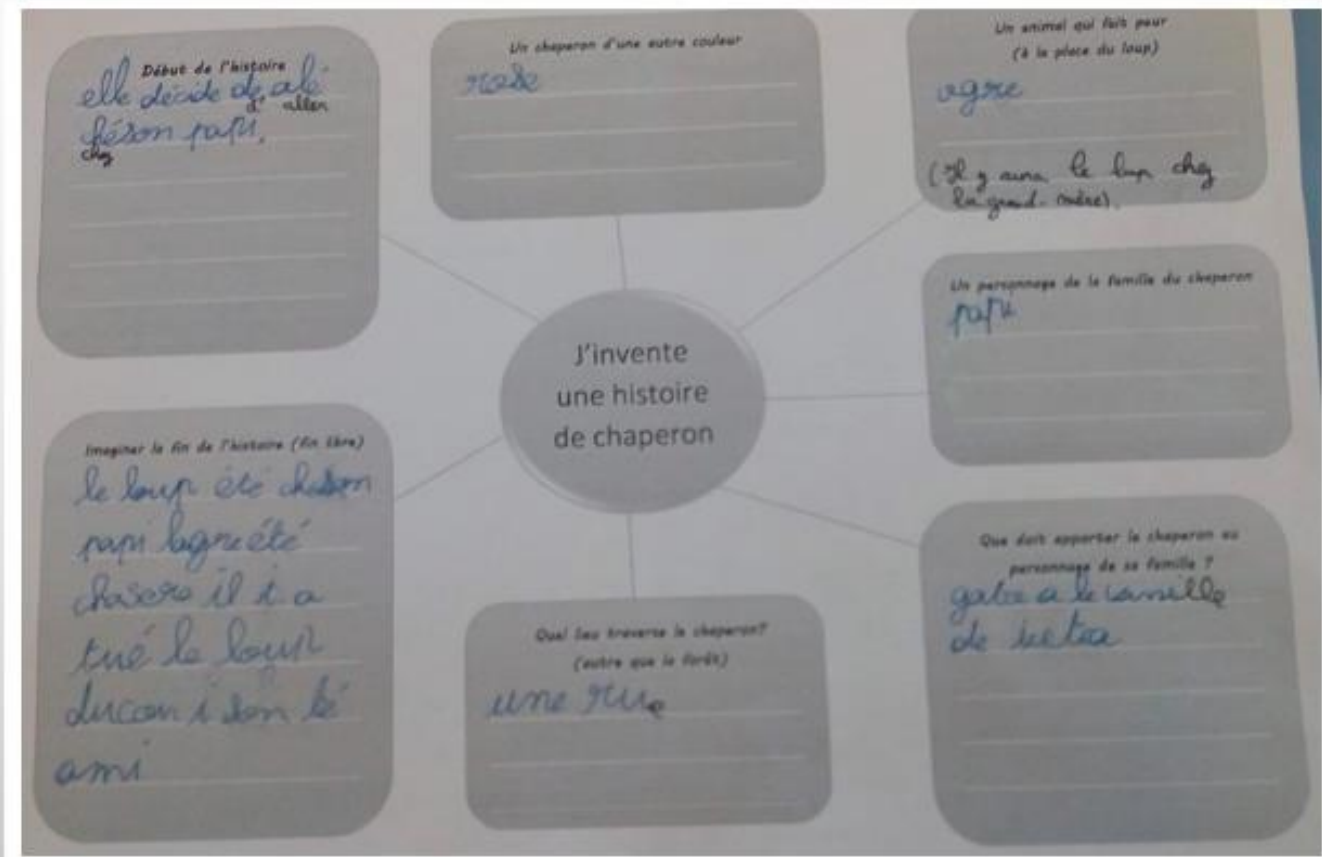 Début de l'histoire
elle décide de alé
d' aller
chéson papi.
chez
Un chaperon d'une autre couleur
rose
Un animal qui fait peur
(à la place du loup)
ogre
(Il y aura le loup chez
la grand-mère).
Un personnage de la famille du chaperon
papi
J'invente
une histoire
de chaperon
Imaginer la fin de l'histoire (fin libre)
le loup été
papi logre été
chasere il i a
tué le loup
ducou i son
ami
Quel lieu traverse le chaperon?
(autre que la forêt)
une rue
Que doit apporter le chaperon au
personnage de sa famille ?
a
de